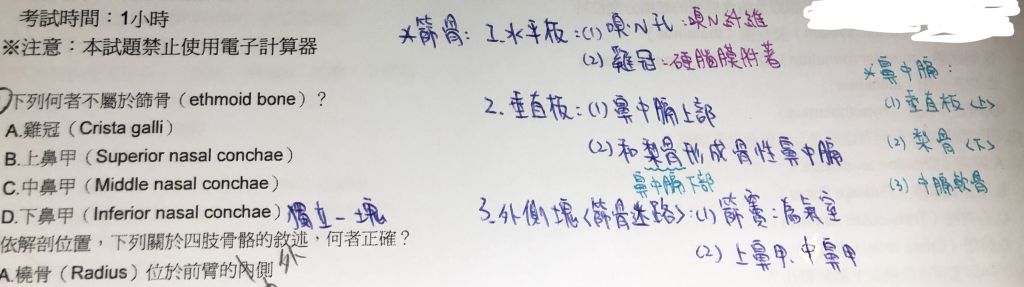 考試時間：1小時
※注意：本試題禁止使用電子計算器
下列何者不屬於篩骨（ethmoid bone）？
A.雞冠（Crista galli）
B.上鼻甲（Superior nasal conchae）
C.中鼻甲（Middle nasal conchae）
D.下鼻甲（Inferior nasal conchae）獨立一塊
依解剖位置，下列關於四肢骨骼的敘述，何者正確？
A.橈骨（Radius）位於前臂的內側 外
*篩骨：1.水平板：(1) 嗅N孔：嗅N纖維
(2) 雞冠：硬腦膜附著
2.垂直板：(1) 鼻中膈上部
(2) 和梨骨形成骨性鼻中膈
鼻中膈下部
3.外側塊<篩骨迷路>：(1) 篩竇：為氣室
(2) 上鼻甲、中鼻甲
*鼻中膈：
(1) 垂直板<上>
(2) 梨骨<下>
(3) 中膈軟骨